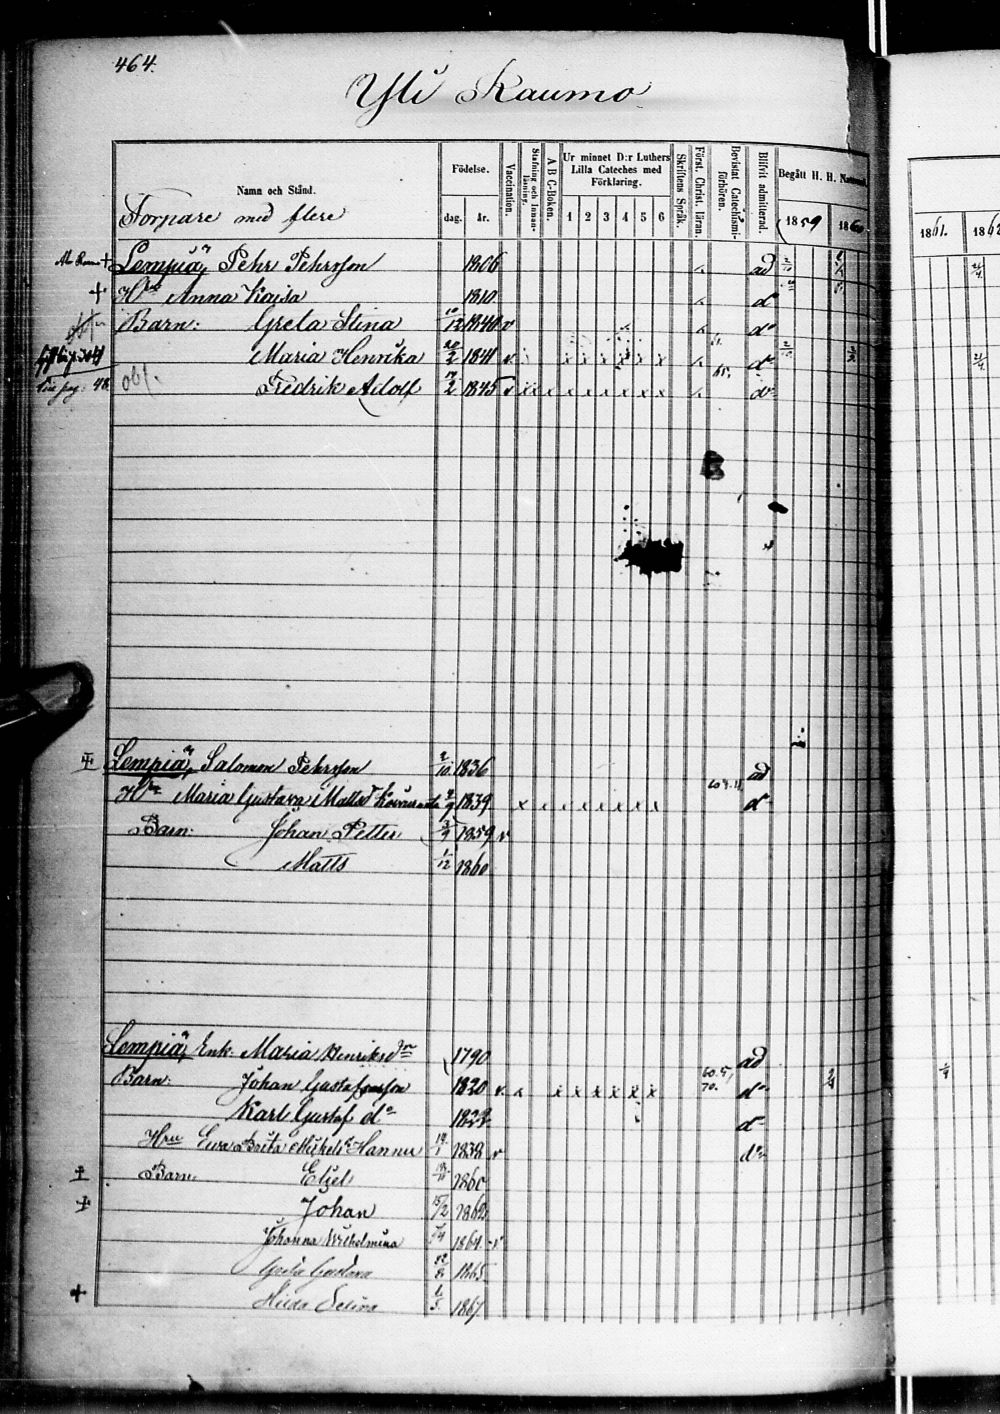 464.
Yli Kaumo
Namn och Stånd.
Födelse.
dag. år.
Vaccination.
Stafning och Innan-läsning.
A B C-Boken.
Ur minnet D:r Luthers
Lilla Cateches med
Förklaring.
1 2 3 4 5 6
Skriftens Språk.
Först. Christ. läran.
Bevistat Catechismi-förhören.
Blifvit admitterad.
Begått H. H.
1859 1860
1861. 1862
Torpare med flere
Lempiä, Pehr Pehrsson 1806 ad
Hu Anna Kajsa 1810 do
Barn: Greta Stina 12 1840 v do
Maria Henrika 20/2 1841 v x x x x x x x do
Fredrik Adolf 2 1845 v x x x x x x x x do
Lempiä, Salomon Pehrsson 2/10 1836 ad
Hu Maria Gustava Mattsd 1839 x x x x x x x x do
Barn: Johan Petter 1859 v
Matts 1/12 1860
Lempiä, Enk. Maria Henriksdr 1790 ad
Barn: Johan Gustafsson 1820 v x x x x x x x x 70. do
Karl Gustaf do 1822 do
Hru Ewa Brita Mickelsd Hannu 1838 v do
Barn: 1860
Johan 15/2 1862
Johanna Wilhelmina 1864 v
Greta Gustava 1865
Hilda Selina 1/5 1867